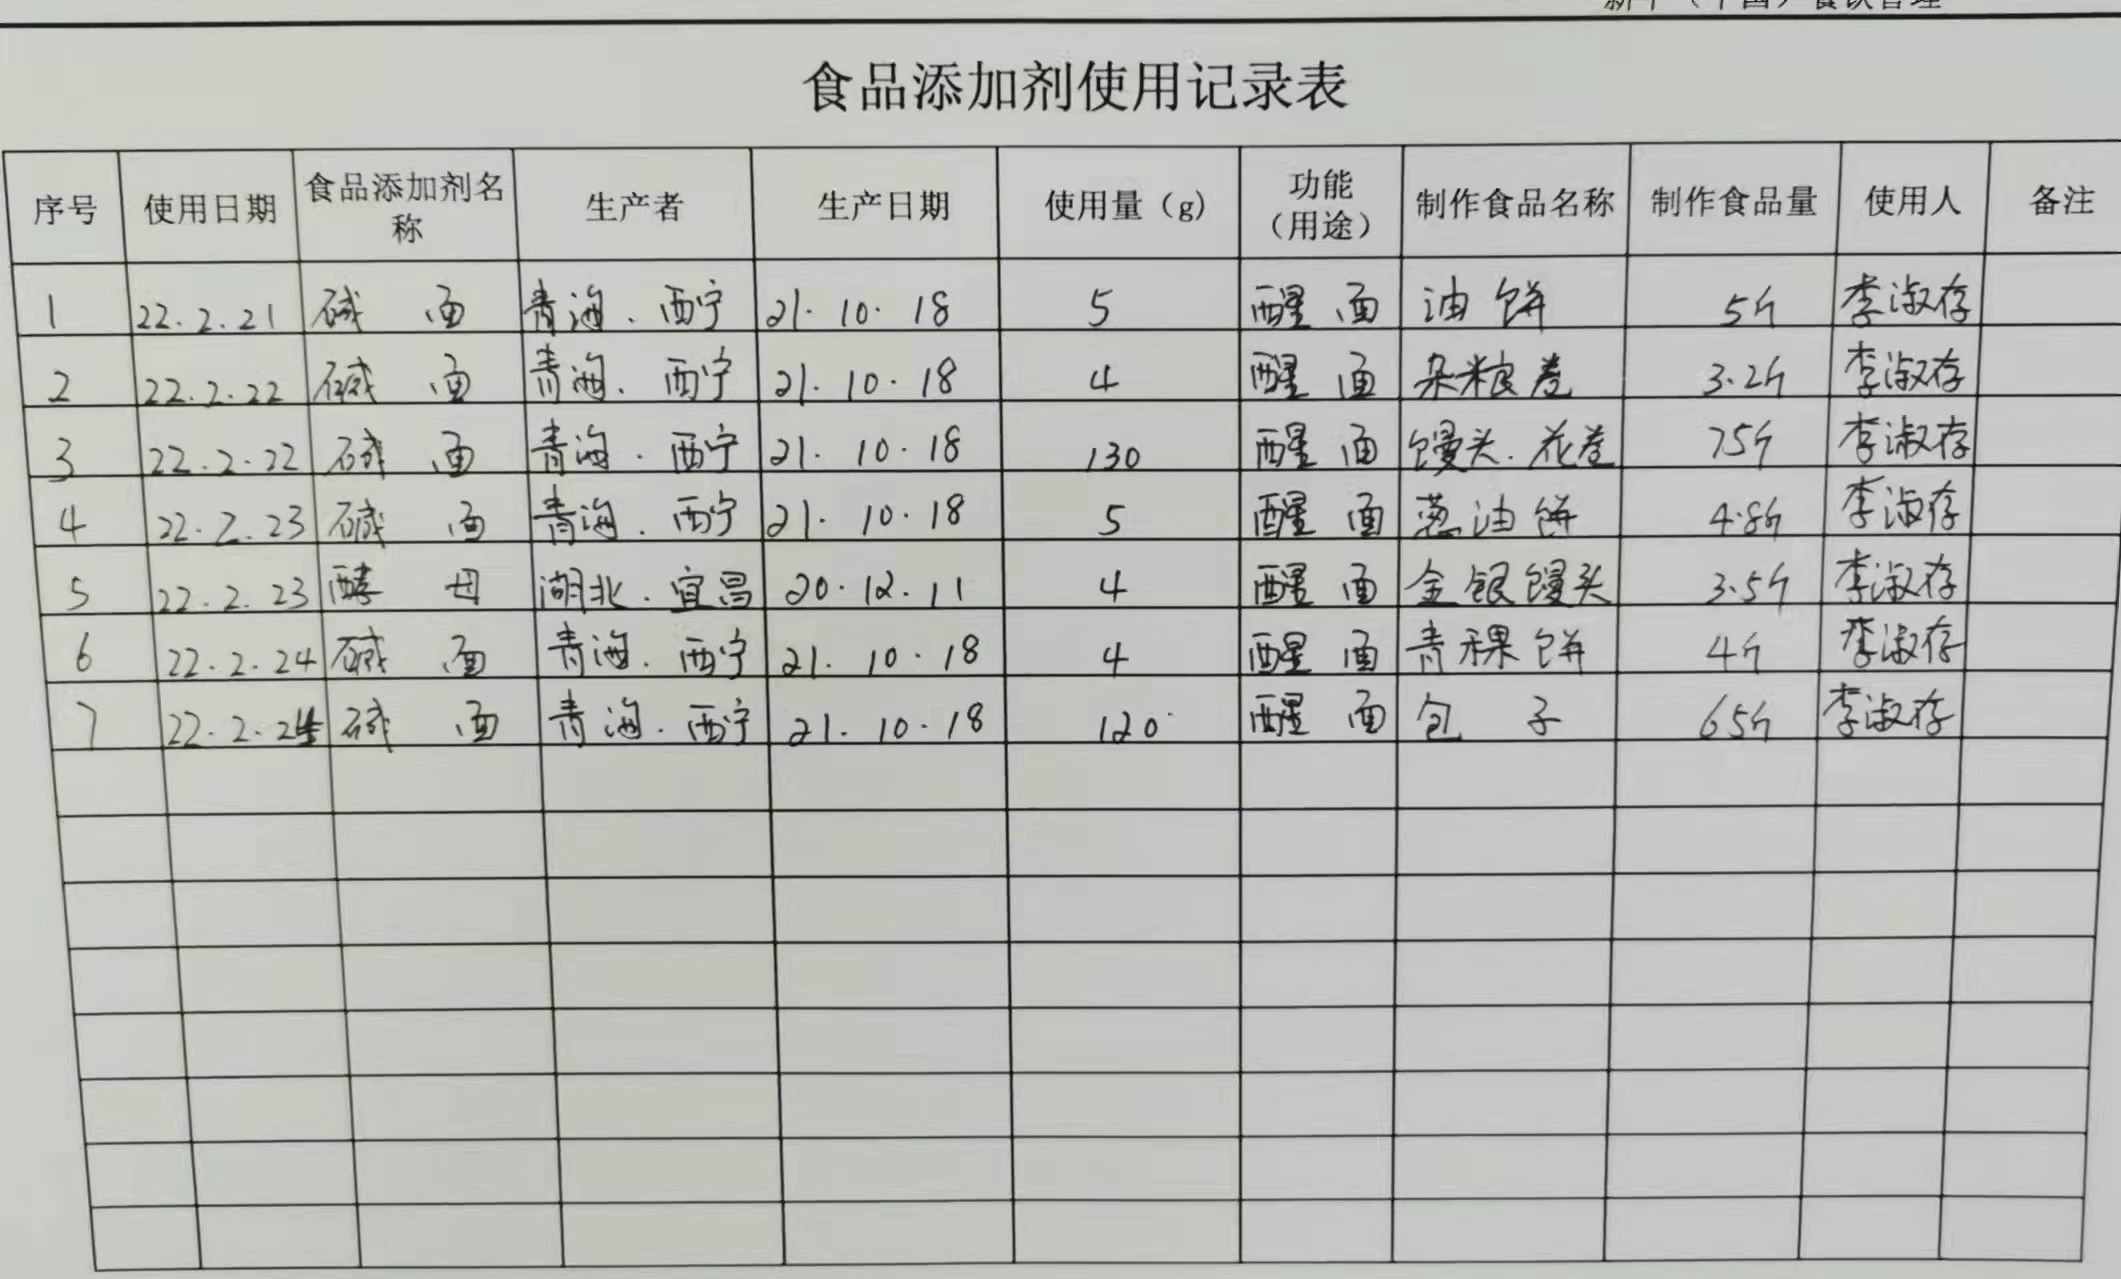 食品添加剂使用记录表
序号 使用日期 食品添加剂名称 生产者 生产日期 使用量（g） 功能（用途） 制作食品名称 制作食品量 使用人 备注
1 22.2.21 碱面 青海.西宁 21.10.18 5 醒面 油饼 5斤 李淑存
2 22.2.22 碱面 青海.西宁 21.10.18 4 醒面 杂粮卷 3.2斤 李淑存
3 22.2.22 碱面 青海.西宁 21.10.18 130 醒面 馒头.花卷 75斤 李淑存
4 22.2.23 碱面 青海.西宁 21.10.18 5 醒面 葱油饼 4.8斤 李淑存
5 22.2.23 酵母 湖北.宜昌 20.12.11 4 醒面 金银馒头 3.5斤 李淑存
6 22.2.24 碱面 青海.西宁 21.10.18 4 醒面 青稞饼 4斤 李淑存
7 22.2.24 碱面 青海.西宁 21.10.18 120 醒面 包子 65斤 李淑存